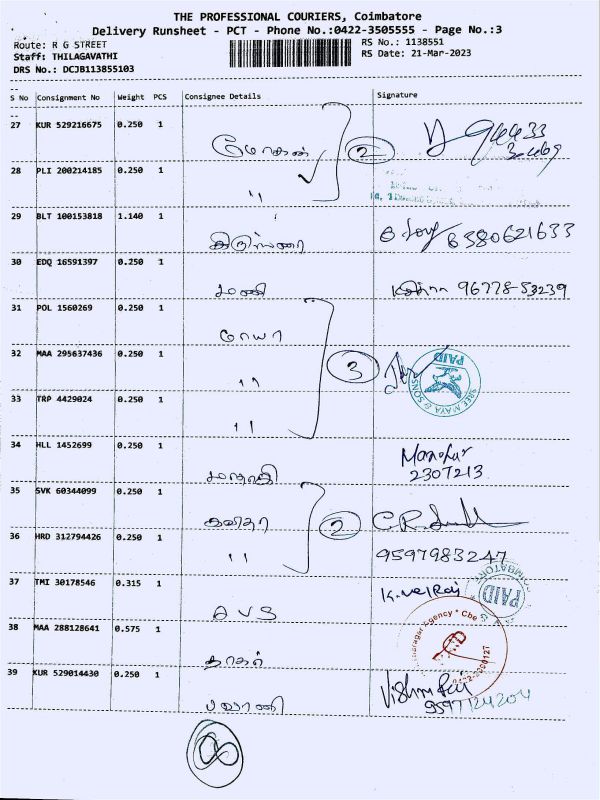 THE PROFESSIONAL COURIERS, Coimbatore
Delivery Runsheet - PCT - Phone No.:0422-3505555 - Page No.:3
Route: R G STREET
RS No.: 1138551
Staff: THILAGAVATHI
RS Date: 21-Mar-2023
DRS No.: DCJB113855103
S No Consignment No Weight PCS Consignee Details Signature
27 KUR 529216675 0.250 1
மோகன் 2
28 PLI 200214185 0.250 1
"
29 BLT 100153818 1.140 1
6380621633
30 EDQ 16591397 0.250 1
மணி 96778-53239
31 POL 1560269 0.250 1
மாயா
32 MAA 295637436 0.250 1
" 3
PAID
SREE MAYA & SONS
33 TRP 4429024 0.250 1
"
34 HLL 1452699 0.250 1
Manohar
2307213
35 SVK 60344099 0.250 1
கவிதா 2
36 HRD 312794426 0.250 1
" 9597983247
37 TMI 30178546 0.315 1
K. Velraj
PAID
AVS
38 MAA 288128641 0.575 1
39 KUR 529014430 0.250 1
பவானி
9597124204